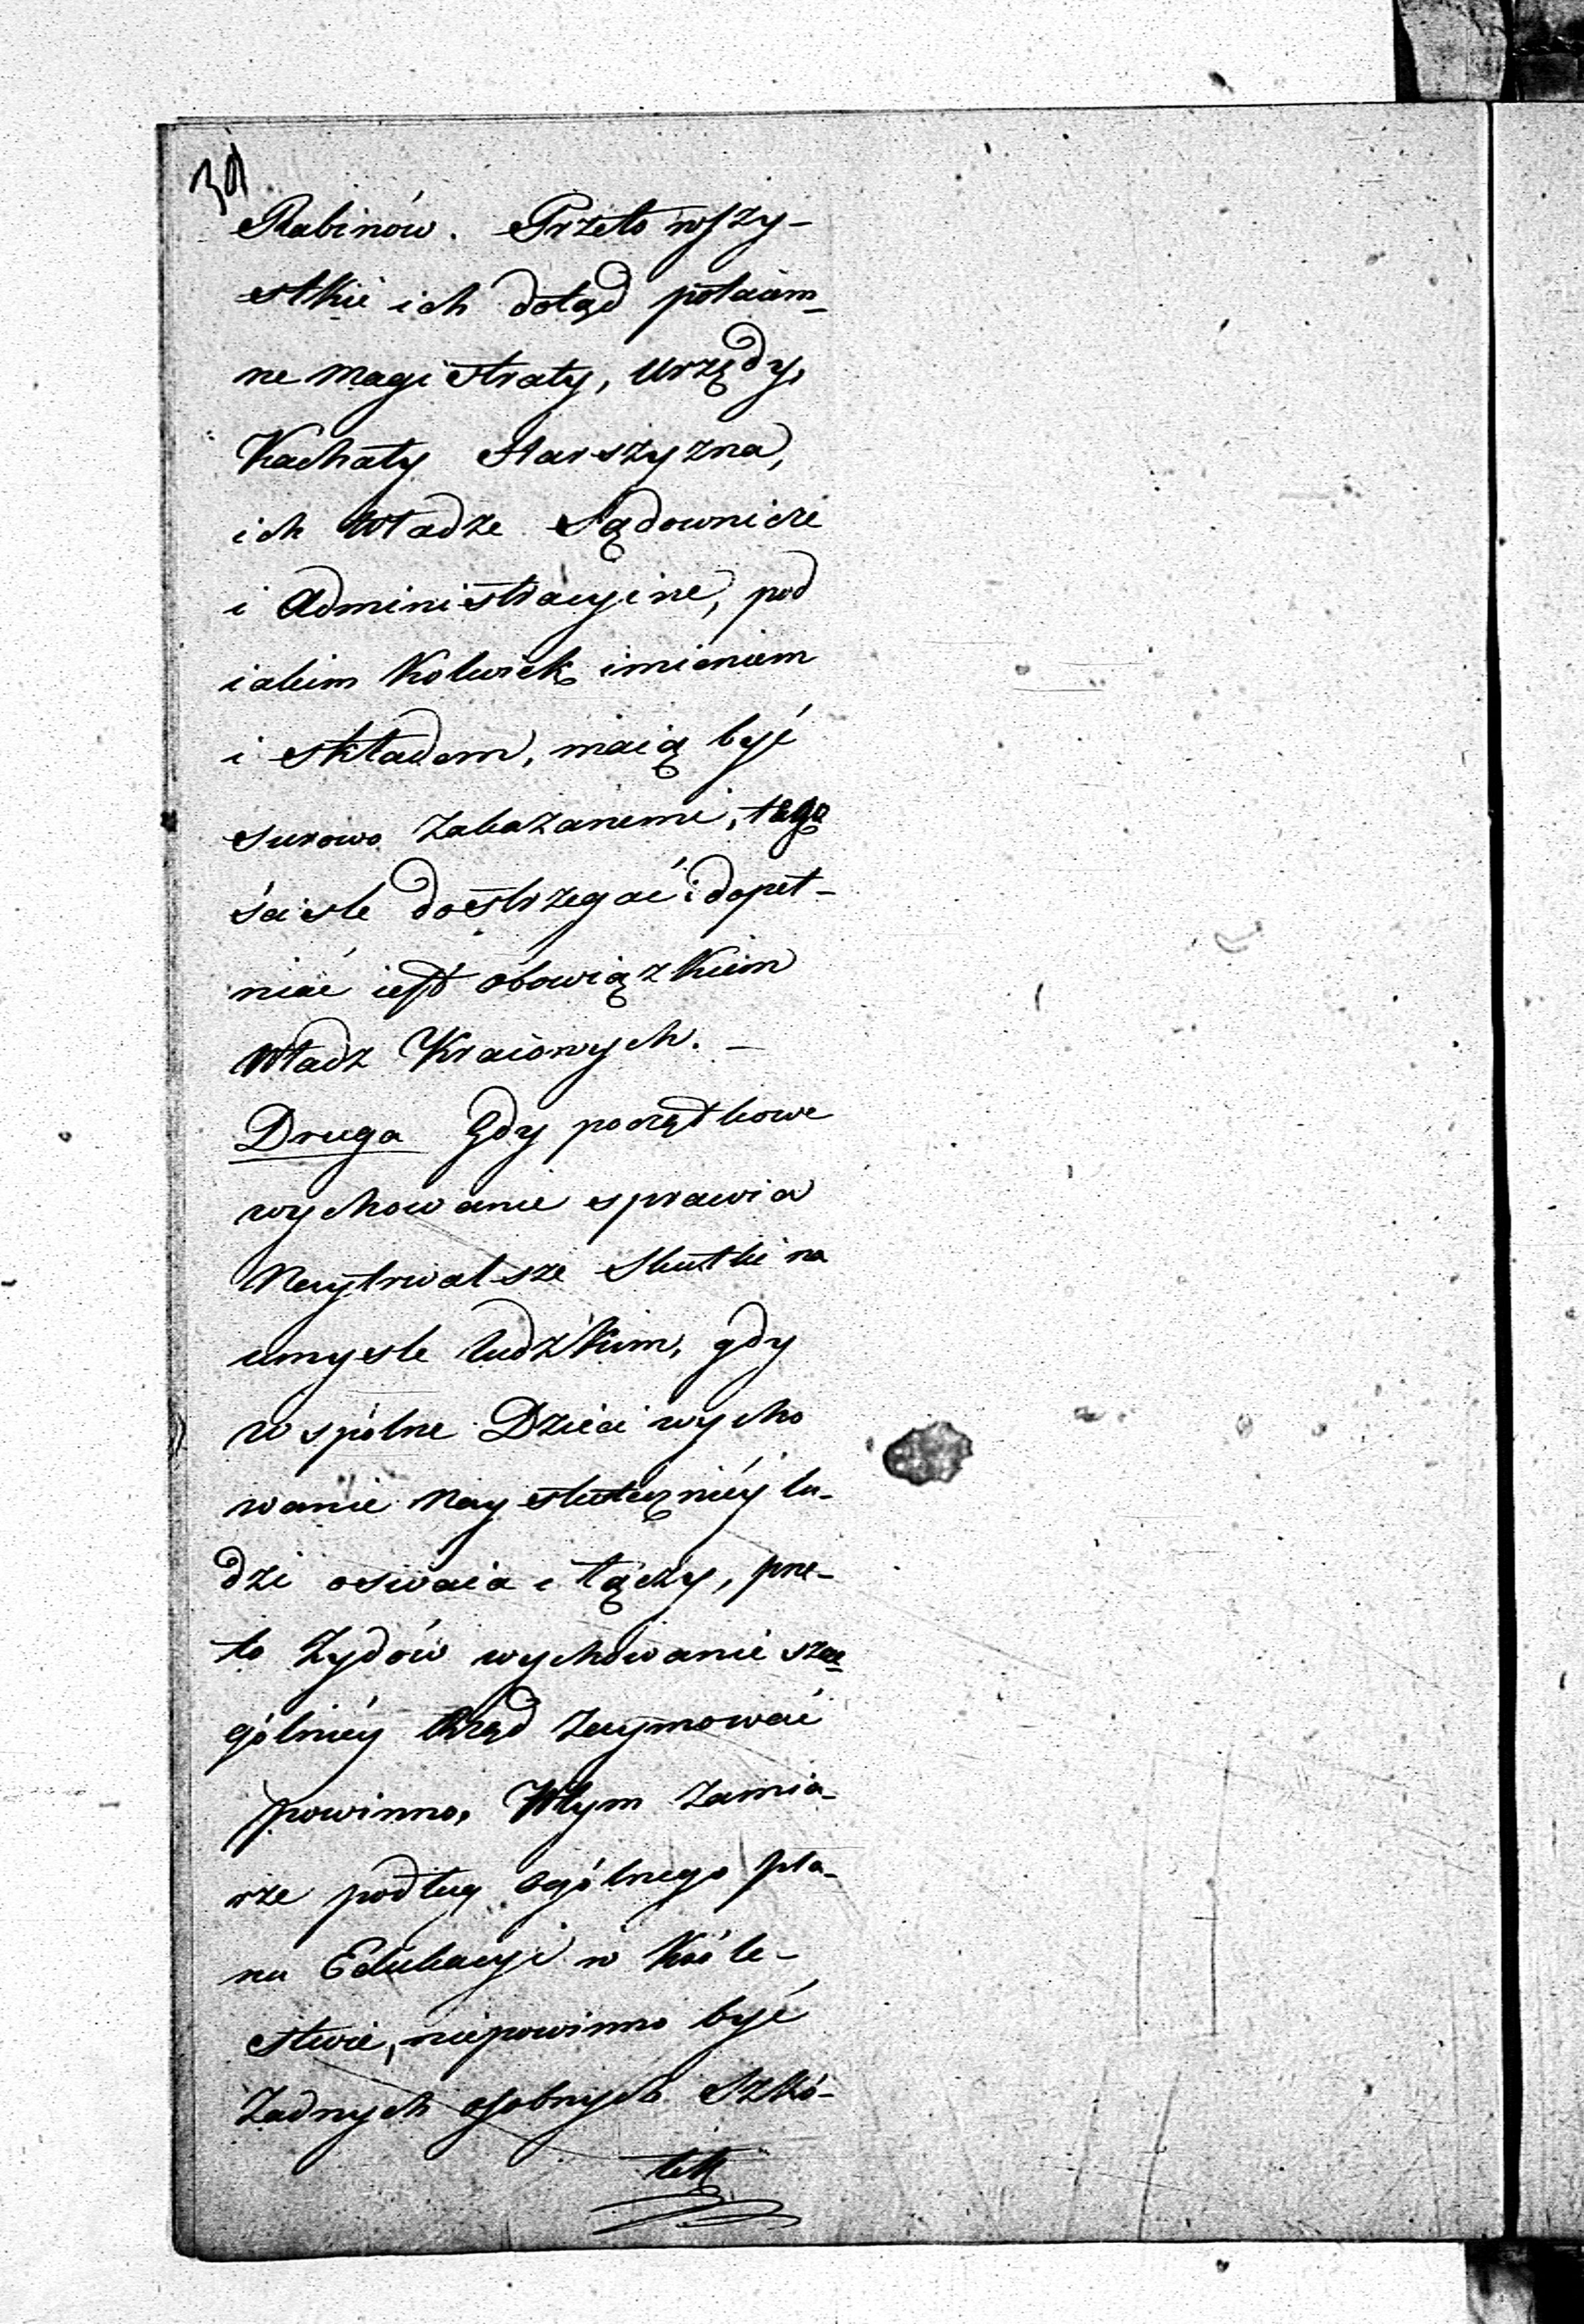 Rabinów. Przeto wszy-
stkie ich dotąd potaiem-
ne Magistraty, Urzędy,
Kachały Starszyzna,
ich Władze Sądownicze
i Administracyine, pod
iakim kolwiek imieniem
i składem, maią być
surowo zakazanemi, tego
ściśle dostrzegać i dopeł-
niać iest obowiązkiem
Władz Kraiowych. —
Druga Gdy początkowe
wychowanie sprawia
Naytrwalsze Skutki na
umyśle ludzkim, gdy
wspólne Dzieci wycho
wanie Nayskuteczniéy lu-
dzi oswaia i łączy, prze-
to Żydów wychowanie szcze-
gólniéy Rząd zaymować
powinno. W tym zamia-
rze podług ogólnego pla-
nu Edukacyi w Króle-
stwie, niepowinno być
Żadnych osobnych Szkó-
łek